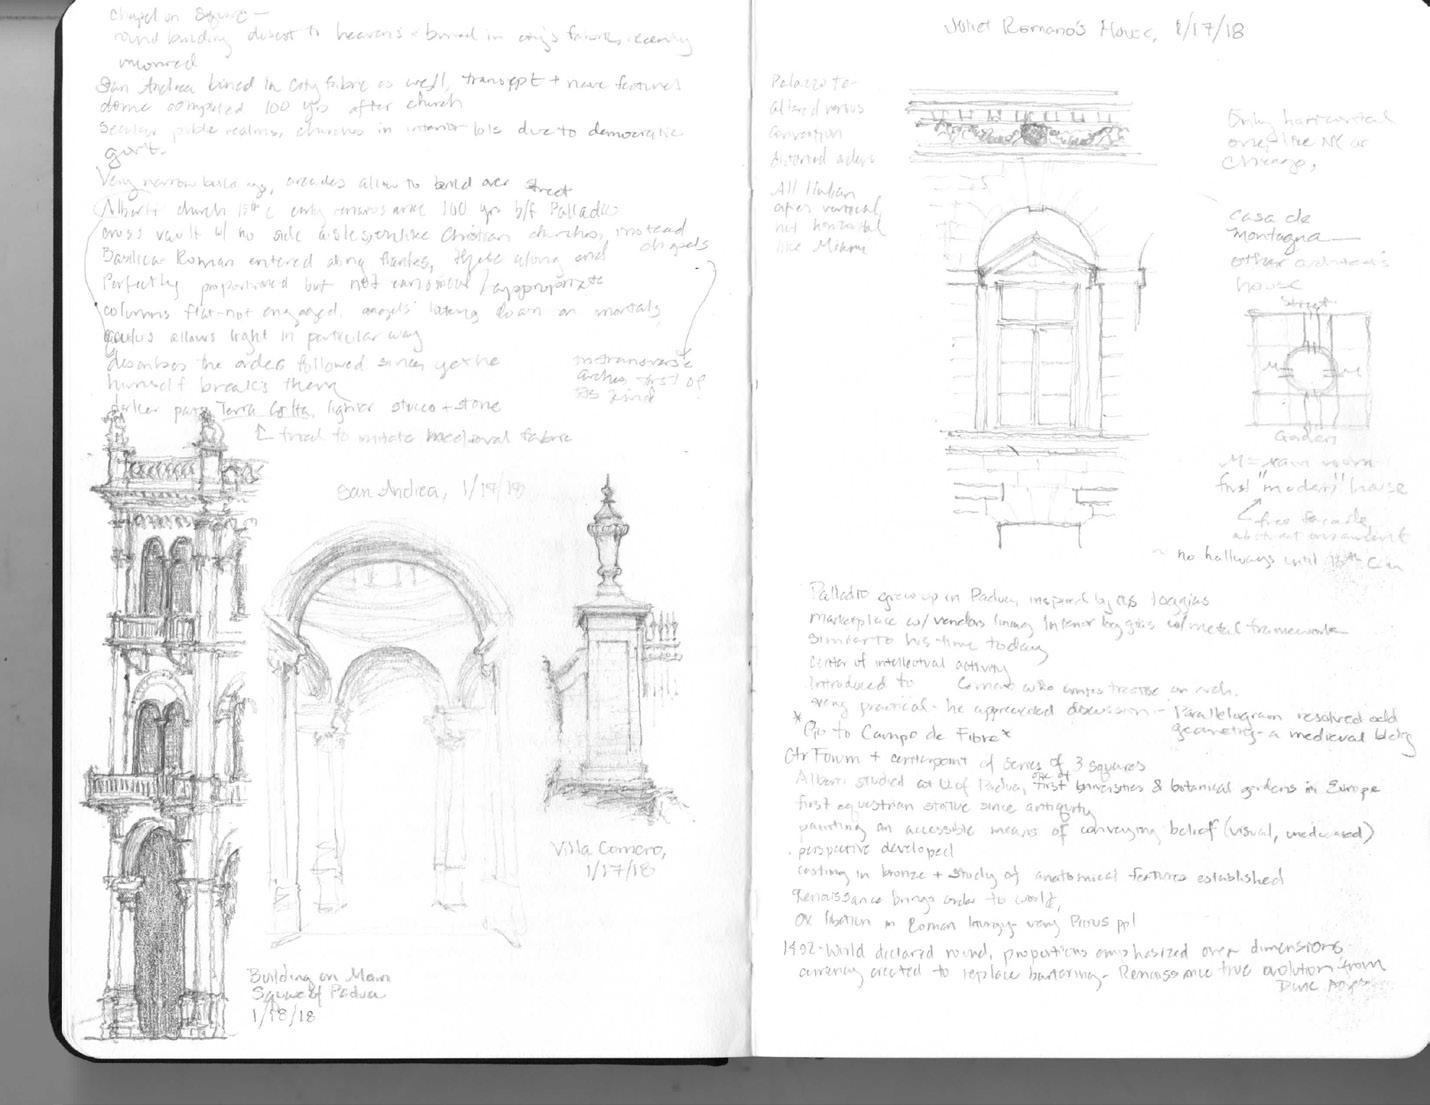 Chapel on Square—
round building closest to heavens + buried in city's fabric, recently
uncovered
San Andrea buried in city fabric as well, transept + nave features
dome completed 100 yrs after church
secular public realms, churches in interior lots due to democratic
gov't.
Very narrow buildings, arcades allow to build over street
Alberti church 15th c early renaissance 100 yrs b/f Palladio
cross vault w/ no side aisles, unlike Christian churches, instead chapels
Basilica Roman entered along flanks, these along end
Perfectly proportioned but not canonical / appropriate
columns flat-not engaged, angels looking down on mortals
oculus allows light in particular way
describes the orders followed since, yet he
himself breaks them
in transverse
arches, first of
its kind
darker parts Terra Cotta, lighter stucco + stone
tried to imitate medieval fabric
San Andrea, 1/19/18
Villa Cornero,
1/17/18
Building on Main
Square of Padua
1/18/18
Juliet Romano's House, 1/17/18
Palazzo te-
altered versus
convention
distorted orders
All Italian
apts vertical,
not horizontal
like Miami
Only horizontal
one, like NY or
Chicago,
Casa de
Montagna—
other architect's
house
Street
M
M
Garden
M = main room
first "modern" house
free facade
abstract ornament
~ no hallways until 18th Cen
Palladio grew up in Padua, inspired by its loggias
marketplace w/ vendors lining interior loggias w/ metal framework
similar to his time today
Center of intellectual activity
Introduced to Cornero who writes treatise on arch.
very practical - he appreciated discussion - Parallelogram resolved odd
geometry - a medieval bldg
* Go to Campo de Fibre *
Ctr Forum + centerpoint of series of 3 squares
Alberti studied at U of Padua, one of first universities & botanical gardens in Europe
first equestrian statue since antiquity
painting an accessible means of conveying belief (visual, uneducated)
perspective developed
casting in bronze + study of anatomical features established
Renaissance brings order to world,
ox libation in Roman liturgy - very Pious ppl
1492 - World declared round, proportions emphasized over dimensions
currency created to replace bartering - Renaissance true evolution from
Dark Ages